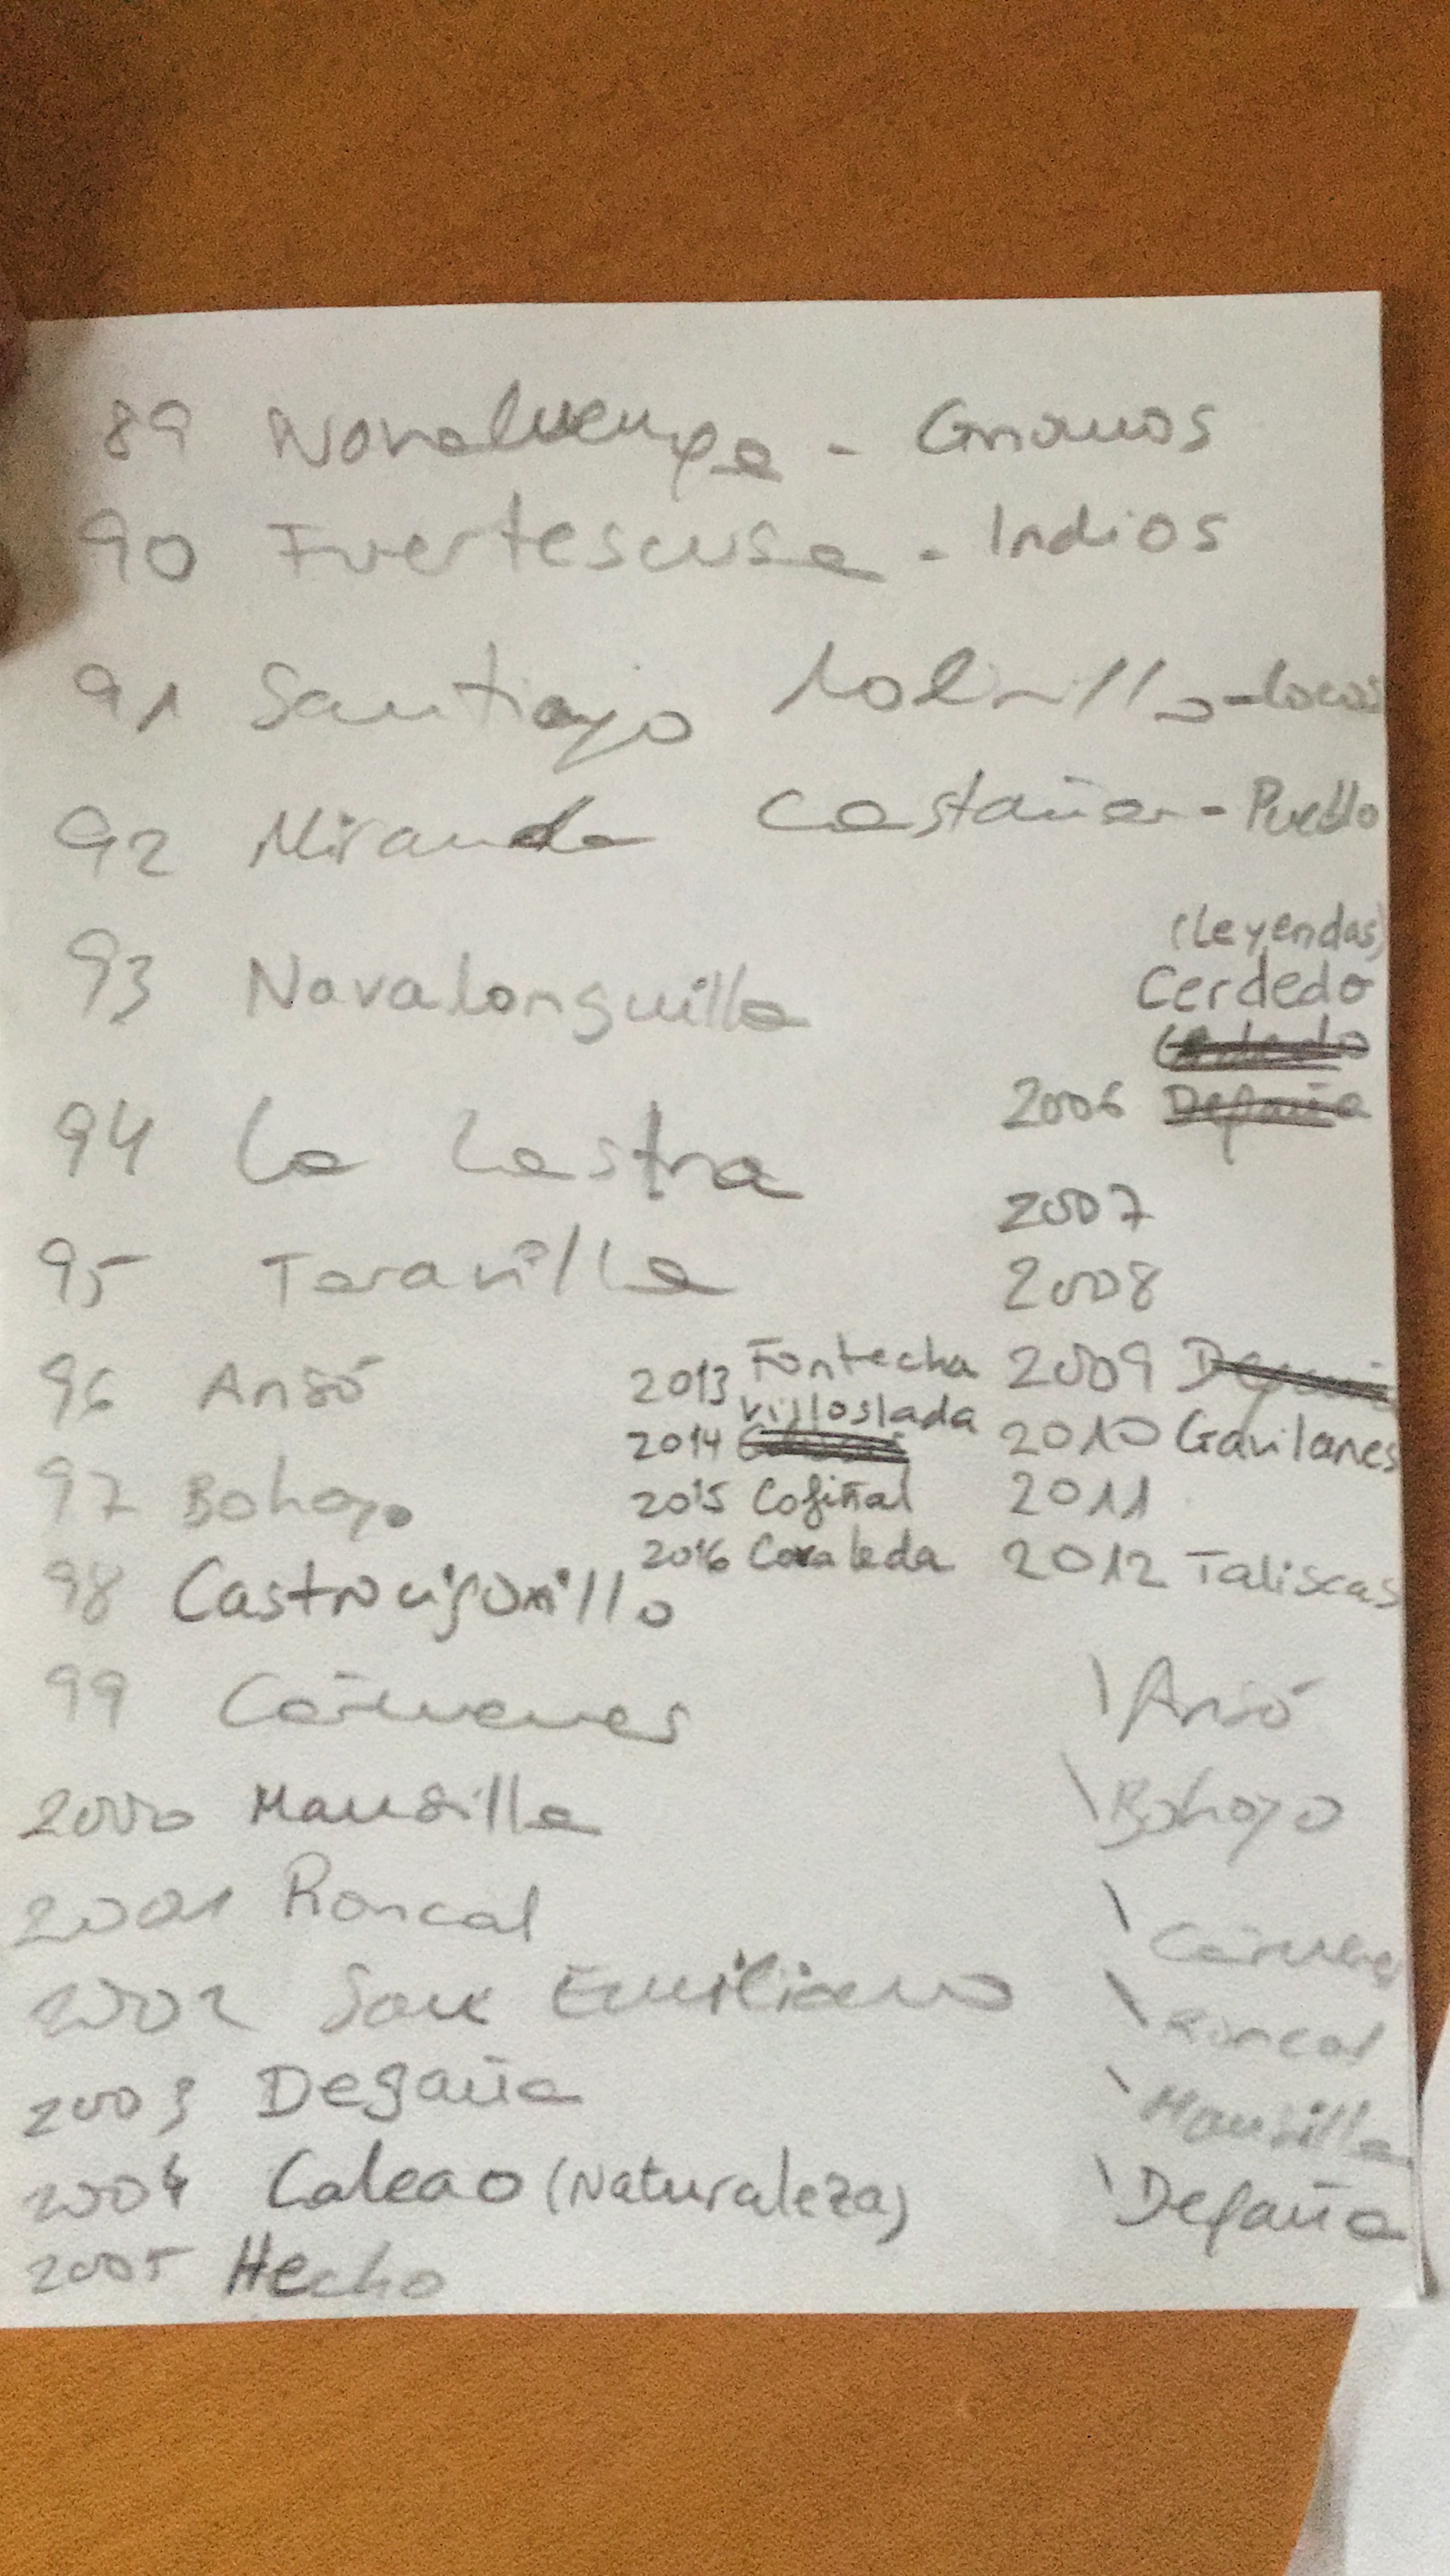 89 Navaluenga - Gnomos
90 Fuertescusa - Indios
91 Santiago Molinillo - locos
92 Miranda Castañar - Pueblo
93 Navalonguilla
94 La Lastra
95 Taravilla
96 Ansó
97 Bohoyo
98 Castrocigonillo
99 Cármenes
2000 Mansilla
2001 Roncal
2002 San Emiliano
2003 Degaña
2004 Caleao (Naturaleza)
2005 Hecho
(Leyendas)
Cerdedo
2006 Degaña
2007
2008
2009
2010 Gavilanes
2011
2012 Taliscas
2013 Fontecha
Villoslada
2014
2015 Cofiñal
2016 Covaleda
\ Ansó
\ Bohoyo
\ Cármenes
\ Roncal
\ Mansilla
\ Degaña